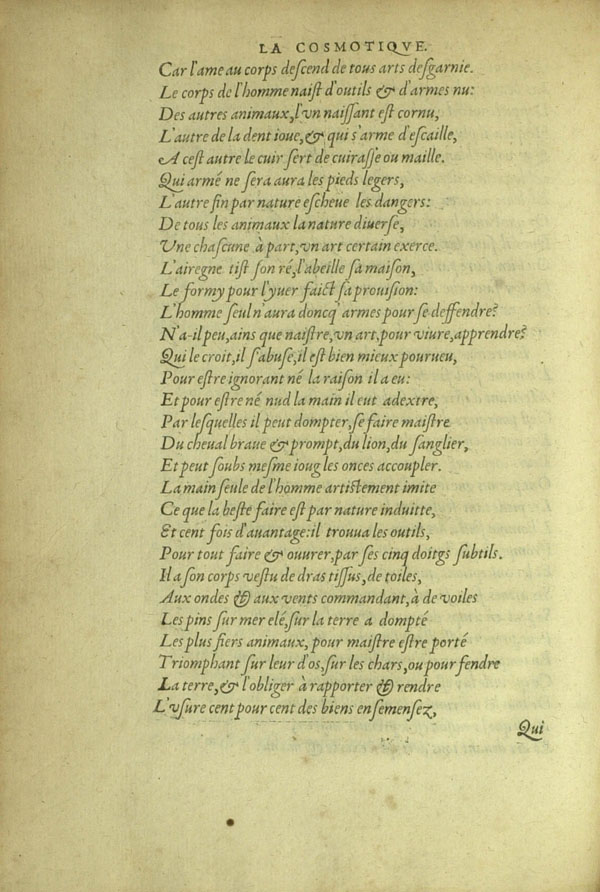 LA COSMOTIQVE.
Car l'ame au corps deſcend de tous arts deſgarnie.
Le corps de l'homme naiſt d'outils & d'armes nu:
Des autres animaux, l'vn naiſſant eſt cornu,
L'autre de la dent ioue, & qui s'arme d'eſcaille,
A ceſt autre le cuir ſert de cuiraſſe ou maille.
Qui armé ne ſera aura les pieds legers,
L'autre fin par nature eſcheue les dangers:
De tous les animaux la nature diuerſe,
Vne chaſcune à part, vn art certain exerce.
L'airegne tiſt ſon ré, l'abeille ſa maiſon,
Le formy pour l'yuer faict ſa prouiſion:
L'homme ſeul n'aura doncq' armes pour ſe deffendre?
N'a-il peu, ains que naiſtre, vn art, pour viure, apprendre?
Qui le croit, il ſabuſe, il eſt bien mieux pourueu,
Pour eſtre ignorant né la raiſon il a eu:
Et pour eſtre né nud la main il eut adextre,
Par leſquelles il peut dompter, ſe faire maiſtre
Du cheual braue & prompt, du lion, du ſanglier,
Et peut ſoubs meſme ioug les onces accoupler.
La main ſeule de l'homme artiſtement imite
Ce que la beſte faire eſt par nature induitte,
Et cent fois d'auantage: il trouua les outils,
Pour tout faire & ouurer, par ſes cinq doitgs ſubtils.
Il a ſon corps veſtu de dras tiſſus, de toiles,
Aux ondes & aux vents commandant, à de voiles
Les pins ſur mer elé, ſur la terre a dompté
Les plus fiers animaux, pour maiſtre eſtre porté
Triomphant ſur leur d'os, ſur les chars, ou pour fendre
La terre, & l'obliger à rapporter & rendre
L'vſure cent pour cent des biens enſemenſez,
Qui